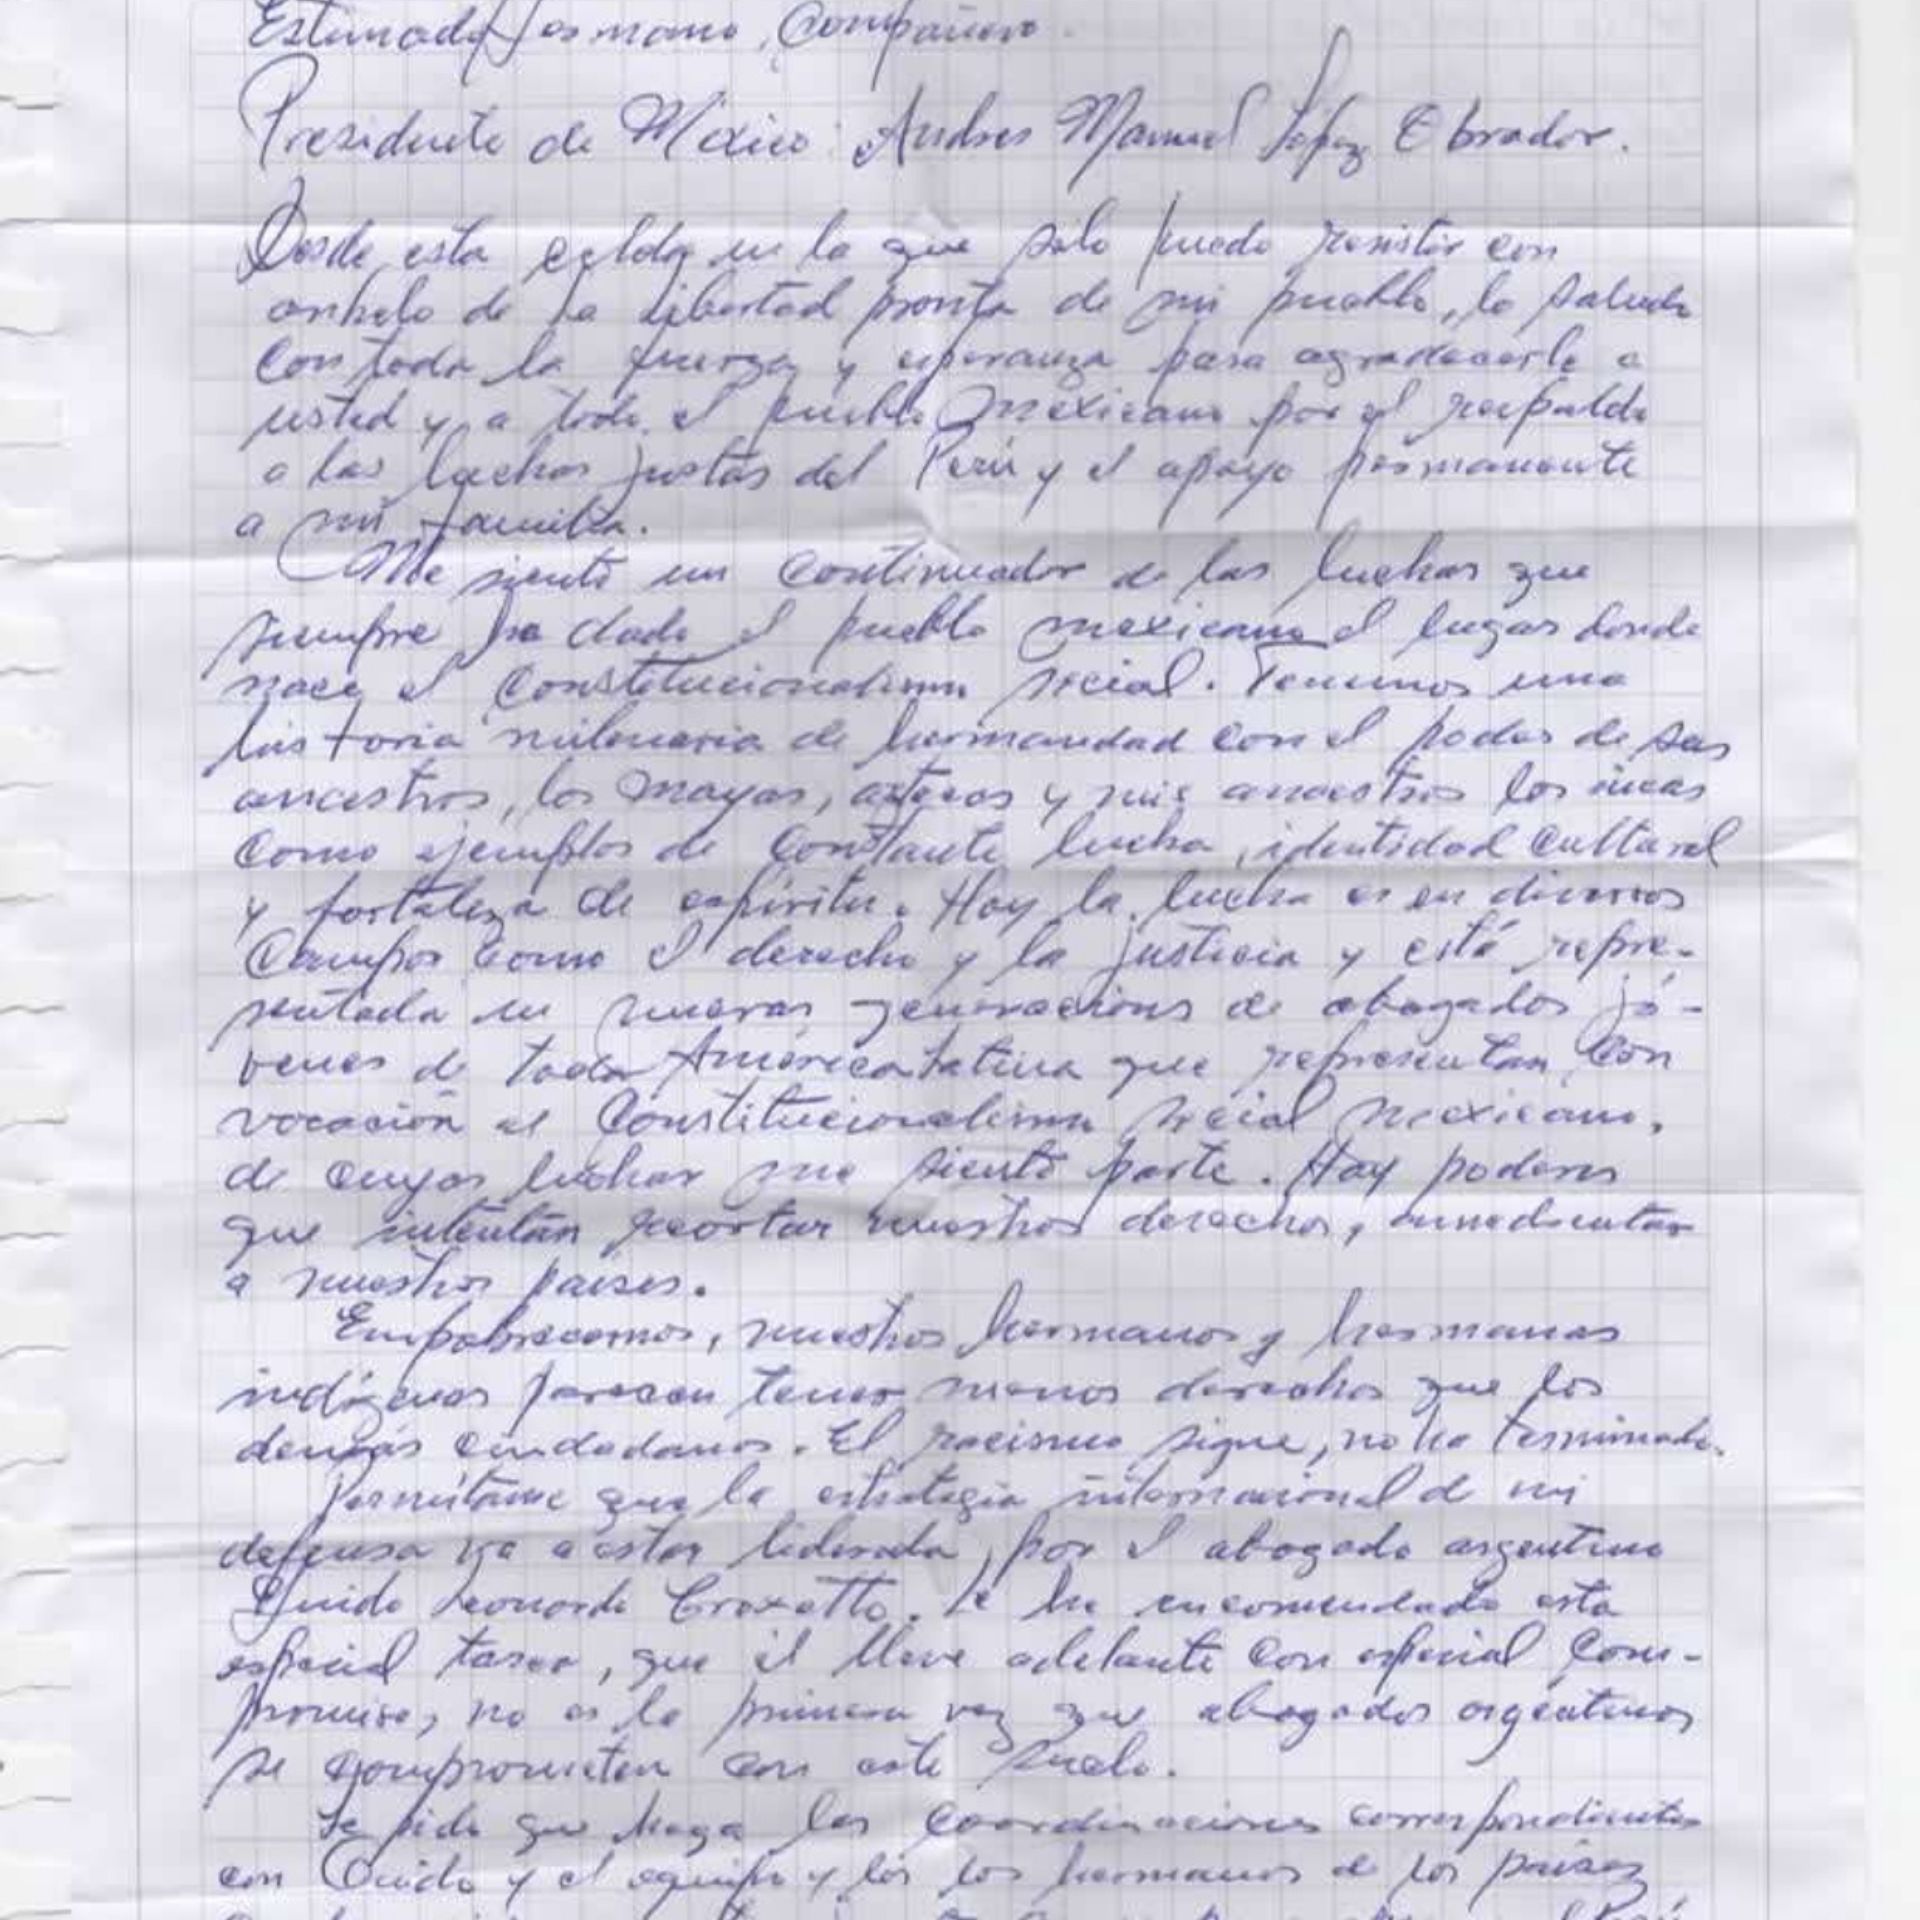 Estimado Hermano, Compañero
Presidente de México: Andres Manuel López Obrador.
Desde esta celda en la que sólo puedo resistir con
anhelo de la libertad pronta de mi pueblo, lo saludo
con toda la fuerza y esperanza para agradecerle a
usted y a todo el pueblo mexicano por el respaldo
a las luchas justas del Perú y el apoyo permanente
a mi familia.
Me siento un continuador de las luchas que
siempre ha dado el pueblo mexicano el lugar donde
nace el constitucionalismo social. Tenemos una
historia milenaria de hermandad con el poder de sus
ancestros, los mayas, aztecas y mis ancestros los incas
como ejemplos de constante lucha, identidad cultural
y fortaleza de espíritu. Hoy la lucha es en diversos
campos como el derecho y la justicia y está repre-
sentada en nuevas generaciones de abogados jó-
venes de toda América Latina que representan con
vocación el Constitucionalismo social mexicano,
de cuyas luchas me siento parte. Hay poderes
que intentan recortar nuestros derechos, amedrentar
a nuestros países.
Empobrecernos, nuestros hermanos y hermanas
indígenas parecen tener menos derechos que los
demás ciudadanos. El racismo sigue, no ha terminado.
Permítame que la estrategia internacional de mi
defensa va a estar liderada por el abogado argentino
Guido Leonardo Croxatto. Le he encomendado esta
especial tarea, que él lleve adelante con especial com-
promiso, no es la primera vez que abogados argentinos
se comprometen con este suelo.
Le pido que haga las coordinaciones correspondientes
con Guido y el equipo y los hermanos de los países
Perú